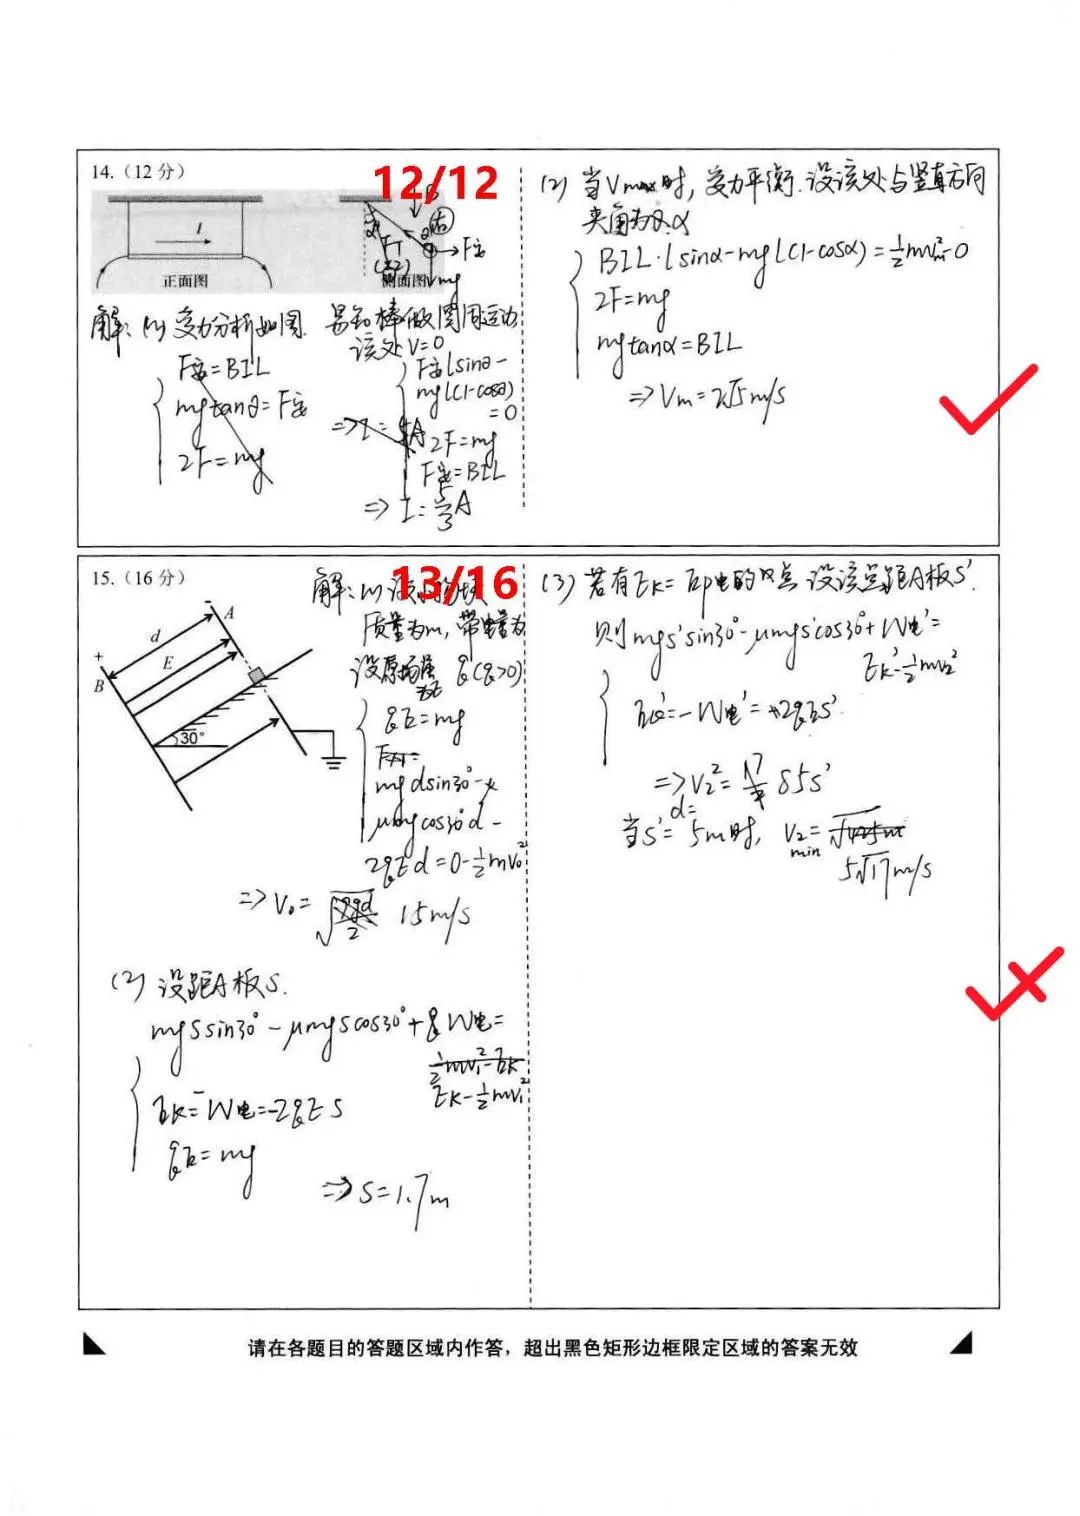 14.（12 分）
12/12
I
正面图
侧面图
F安
mg
解：(1) 受力分析如图. 易知棒做圆周运动
该处V=0
F安=BIL
mgtanθ=F安
2F=mg
F安lsinθ-
mgl(1-cosθ)
=0
2F=mg
F安=BIL
=> I=
A
(2) 当Vmax时, 受力平衡. 设该处与竖直方向
夹角为α
BIL·lsinα-mgl(1-cosα)=½mvm²-0
2F=mg
mgtanα=BIL
=> Vm=2√5m/s
15.（16 分）
13/16
A
d
E
+
B
30°
解: (1) 设小物块
质量为m, 带电量为
q(q>0)
设原场强
为E
qE=mg
mgdsin30°-
μmgcos30°d-
2qEd=0-½mv₀²
=> V₀= 15m/s
(2) 设距A板S.
mgssin30°-μmgscos30°+W电=
Ek-½mv₁²
Ek=-W电=-2qES
qE=mg
=> S=1.7m
(3) 若有Ek=Ep电的点 设该点距A板S'.
则mgs'sin30°-μmgs'cos30°+W电'=
Ek'-½mv₂²
=-W电'=2qES'
=> V₂²= 85s'
当S'=d=5m时, V₂min=
5√17m/s
请在各题目的答题区域内作答，超出黑色矩形边框限定区域的答案无效